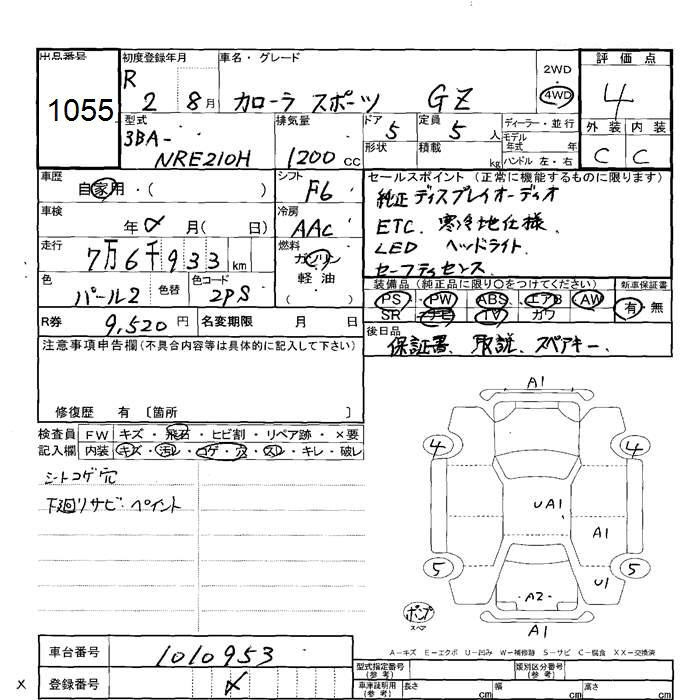 出品番号 初度登録年月 車名・グレード 2WD 評価点
1055 R 2 8月 カローラ スポーツ GZ 4WD 4
型式 排気量 ドア 定員 ディーラー・並行 外装 内装
3BA- 5 5人 モデル年式 年
NRE210H 1200cc 形状 積載 kg ハンドル 左・右 C C
車歴 シフト セールスポイント(正常に機能するものに限ります)
自家用・( ) F6 純正ディスプレイオーディオ
車検 冷房 ETC、寒冷地仕様、
年 月( 日) AAC LED ヘッドライト、
走行 燃料 セーフティセンス
7万6千933km ガソリン
色 色替 色コード 軽油 装備品(純正品に限り○をつけてください) 新車保証書
パール2 2PS ( ) PS・PW・ABS・エアB・AW 有・無
R券 9,520円 名変期限 月 日 SR・TV・カワ
注意事項申告欄(不具合内容等は具体的に記入して下さい) 後日品
保証書、取説、スペアキー、
修復歴 有 〔箇所 〕
A1
検査員 FW キズ・飛石・ヒビ割・リペア跡・×要
記入欄 内装 キズ・汚レ・コゲ・穴・スレ・キレ・破レ
4 4
シートコゲ穴
下廻リサビ・ペイント
UA1
A1
5 5
U1
A2
ポンプ
スペア
A1
A-キズ E-エクボ U-凹み W-補修跡 S-サビ C-腐食 XX-交換済
車台番号 1010953
型式指定番号(参考) 類別区分番号(参考)
X 登録番号
車庫証明用(参考) 長さ cm 幅 cm 高さ cm